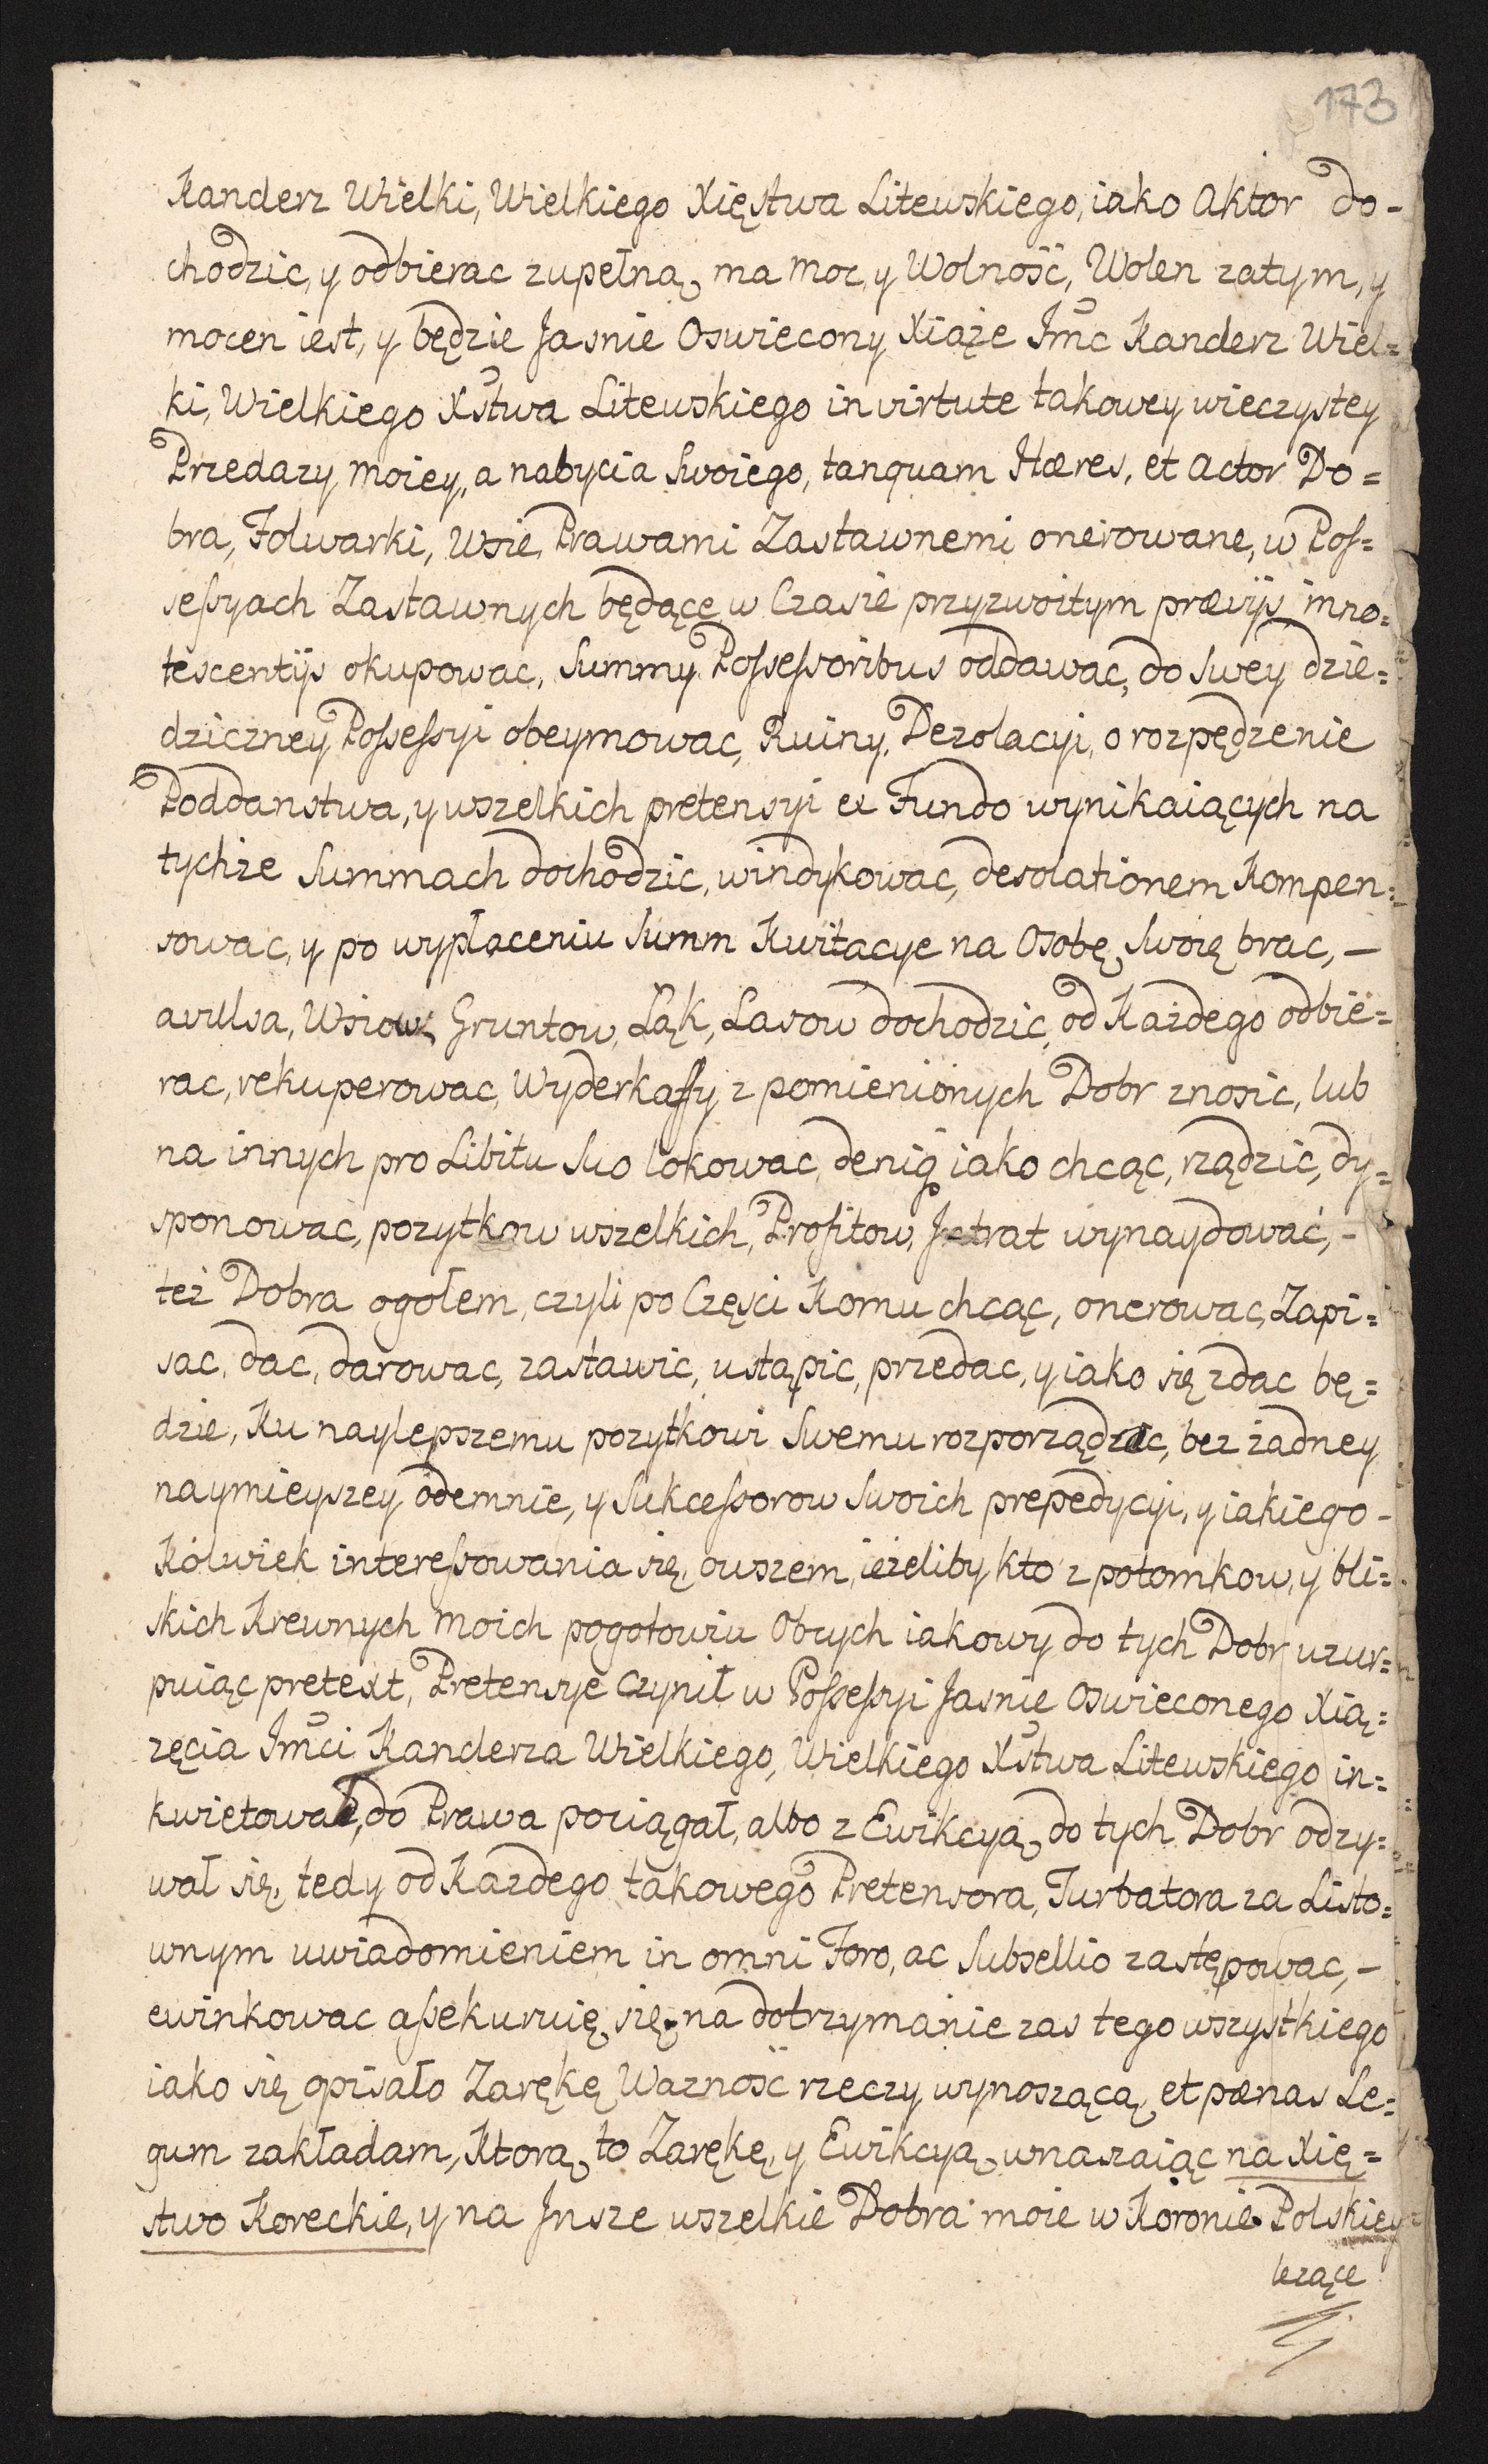 173
Kanclerz Wielki, Wielkiego Xięstwa Litewskiego, iako Aktor do-
chodzic, y odbierac zupełną ma moc, y Wolność, Wolen zatym, y
mocen iest, y będzie Jasnie Oswiecony Xiąże Jmc Kanclerz Wiel=
ki, Wielkiego Xstwa Litewskiego in virtute takowey wieczystey
Przedazy moiey, a nabycia Swoiego, tanquam Hæres, et Actor Do=
bra, Folwarki, Wsie, Prawami Zastawnemi onerowane, w Pos=
sessyach Zastawnych będące w Czasie przyzwoitym prævijs inno=
tescentijs okupowac, Summy Possessoribus oddawac, do Swey dzie=
dziczney Possessyi obeymowac, Ruiny, Dezolacyi, o rozpędzenie
Poddanstwa, y wszelkich pretensyi ex Fundo wynikaiących na
tychże Summach dochodzic, windykowac, desolationem Kompen=
sowac, y po wypłaceniu Summ Kwitacye na Osobę Swoię brac, –
avulsa, Wsiow, Gruntow, Ląk, Lasow dochodzic, od Każdego odbie=
rac, rekuperowac, Wyderkaffy z pomienionych Dobr znosic, lub
na innych pro Libitu Suo lokowac, deniq iako chcąc, rządzic, dy=
sponowac, pozytkow wszelkich, Profitow, Jntrat wynaydowac, –
też Dobra ogołem, czyli po Częsci Komu chcąc, onerowac, Zapi=
sac, dac, darowac, zastawic, ustąpic, przedac, y iako się zdac bę=
dzie, Ku naylepszemu pozytkowi Swemu rozporządzac, bez żadney
naymieyszey odemnie, y Sukcessorow Swoich prepedycyi, y iakiego-
Kolwiek interessowania się, owszem, ieżeliby kto z potomkow, y bli=
skich Krewnych moich pogotowiu Obcych iakowy do tych Dobr uzur=
puiąc pretext, Pretensye Czynił w Possessyi Jasnie Oswieconego Xią=
zęcia Jmci Kanclerza Wielkiego, Wielkiego Xstwa Litewskiego in=
kwietował, do Prawa pociągał, albo z Ewikcyą do tych Dobr odzy=
wał się, tedy od Kazdego takowego Pretensora, Turbatora za Listo=
wnym uwiadomieniem in omni Foro, ac Subsellio zastępowac, –
ewinkowac assekuruię się, na dotrzymanie zas tego wszystkiego
iako się opisało Zarękę Waznosc rzeczy wynoszącą, et pænas Le=
gum zakładam, Ktorą to Zarękę, y Ewikcyą wnaszaiąc na Xię=
stwo Koreckie, y na Jnsze wszelkie Dobra moie w Koronie Polskiey
lezące